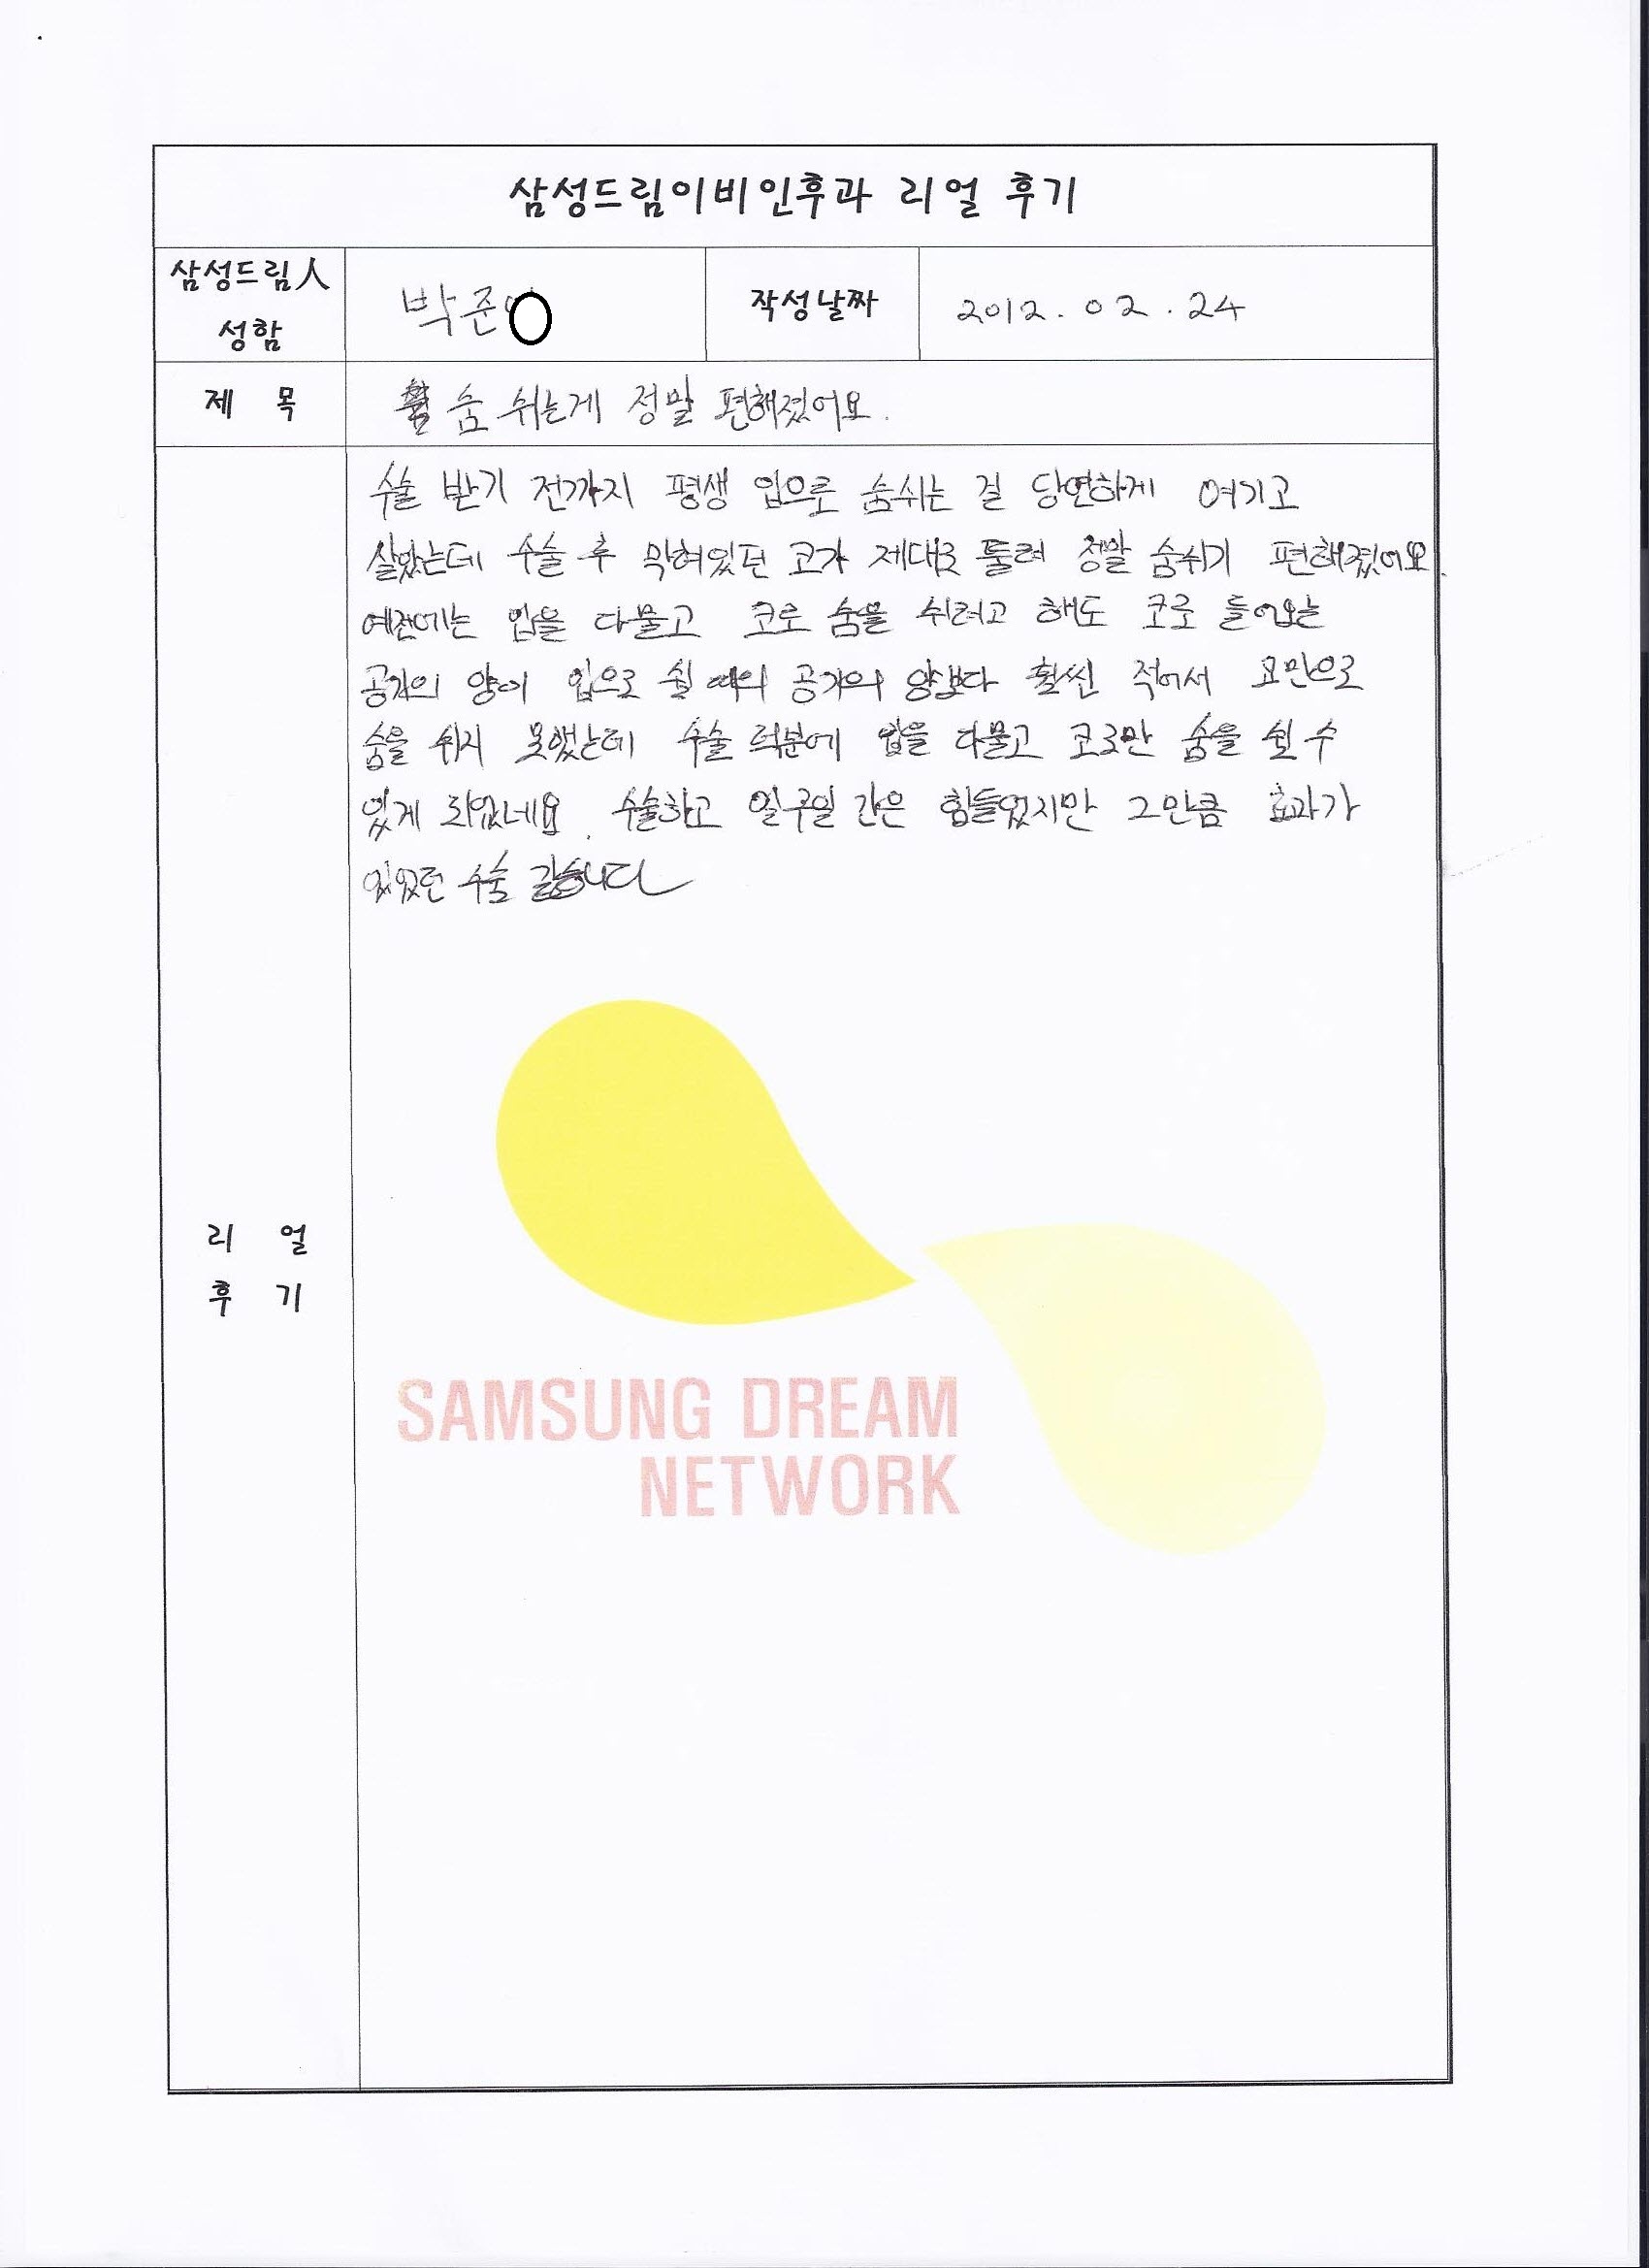 삼성드림이비인후과 리얼 후기
삼성드림人
성함
박준
작성날짜
2012. 02. 24
제 목
숨 쉬는게 정말 편해졌어요.
수술 받기 전까지 평생 입으로 숨쉬는 걸 당연하게 여기고
살았는데 수술 후 막혀있던 코가 제대로 뚫려 정말 숨쉬기 편해졌어요.
예전에는 입을 다물고 코로 숨을 쉬려고 해도 코로 들어오는
공기의 양이 입으로 쉴 때의 공기의 양보다 훨씬 적어서 코만으로
숨을 쉬지 못했는데 수술 덕분에 입을 다물고 코로만 숨을 쉴 수
있게 되었네요. 수술하고 일주일 간은 힘들었지만 그만큼 효과가
있었던 수술 같습니다
리 얼
후 기
SAMSUNG DREAM
NETWORK